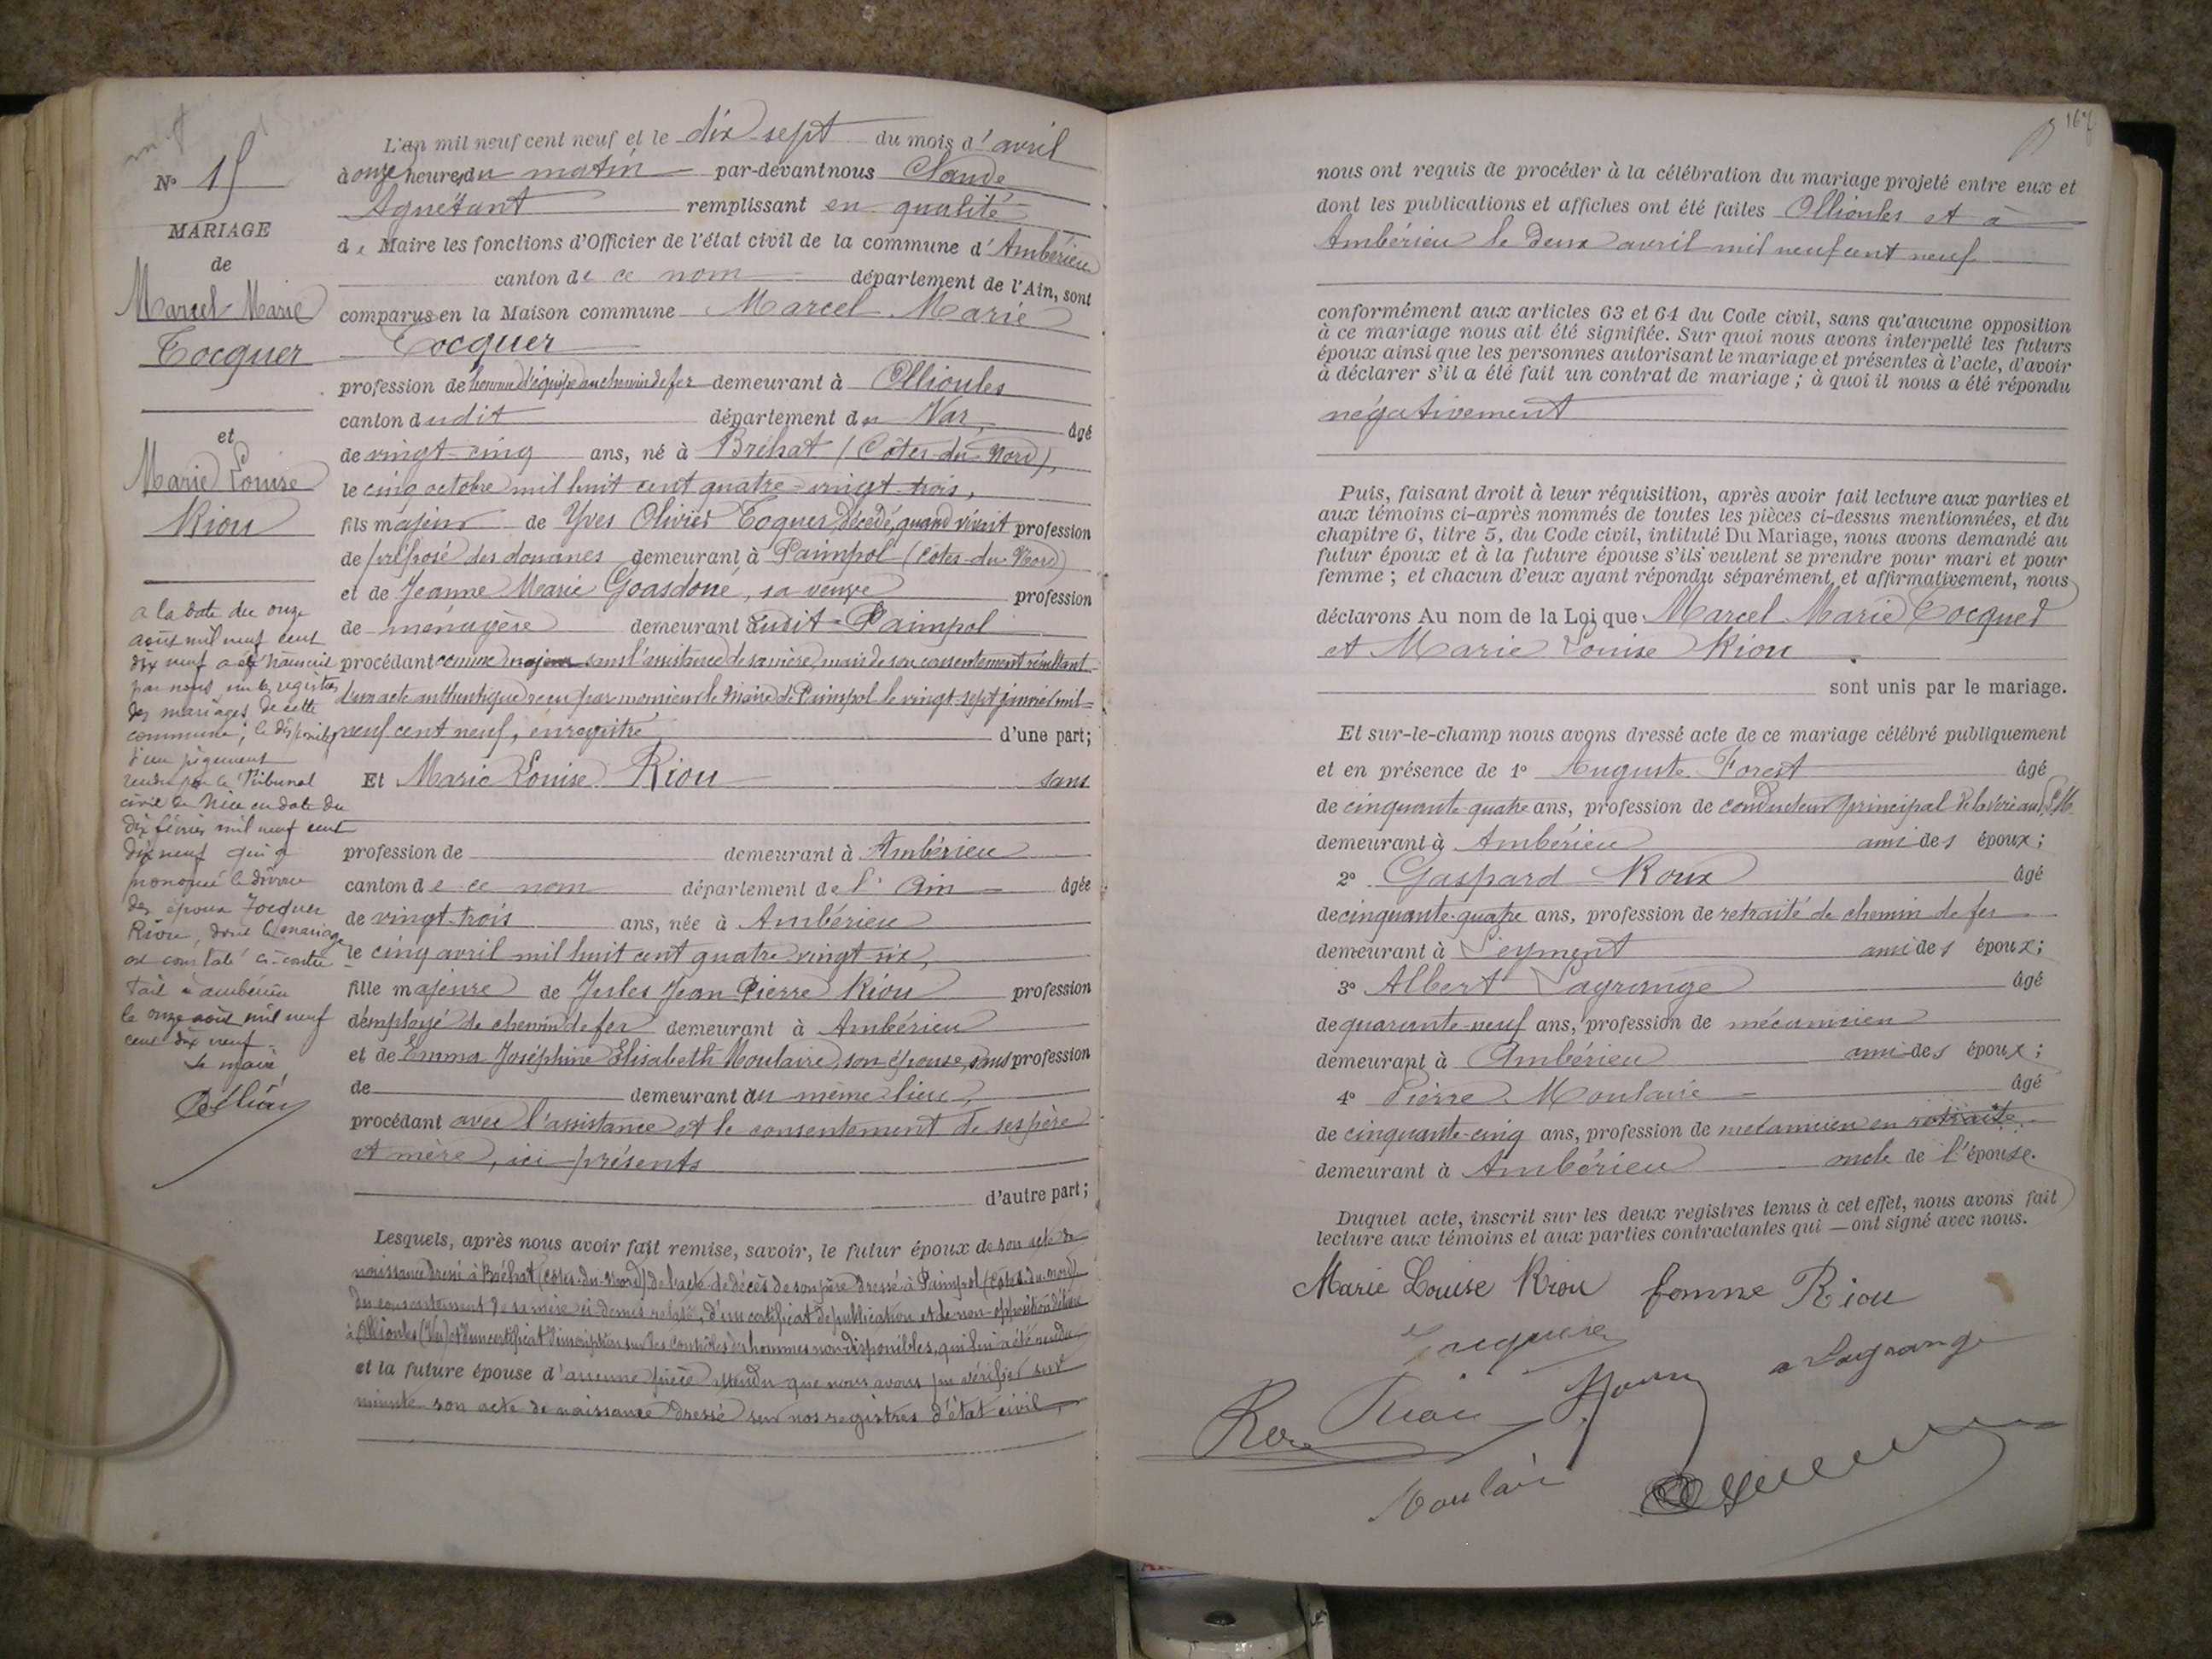 N° 15
MARIAGE
de
Marcel Marie
Tocquer
et
Marie Louise
Riou
a la date du onze
août mil neuf cent
dix neuf a été transcrit
par nous sur les registres
des mariages de cette
commune, le dispositif
d'un jugement
rendu par le Tribunal
civil de Nice en date du
dix février mil neuf cent
dix neuf qui a
prononcé le divorce
des époux Tocquer
Riou, dont le mariage
est constaté ci-contre
Fait à Ambérieu
le onze août mil neuf
cent dix neuf.
Le maire,
L'an mil neuf cent neuf et le dix sept du mois d'avril
à onze heures du matin par-devant nous Claude
Aguétant remplissant en qualité
de Maire les fonctions d'Officier de l'état civil de la commune d'Ambérieu
canton de ce nom département de l'Ain, sont
comparus en la Maison commune Marcel Marie
Tocquer
profession de homme d'équipe au chemin de fer demeurant à Ollioules
canton dudit département du Var, âgé
de vingt-cinq ans, né à Bréhat (Côtes-du-Nord),
le cinq octobre mil huit cent quatre-vingt-trois,
fils majeur de Yves Olivier Tocquer, décédé, quand vivait profession
de préposé des douanes demeurant à Paimpol (Côtes-du-Nord)
et de Jeanne Marie Goasdoué, sa veuve profession
de ménagère demeurant audit Paimpol
procédant comme majeur sans l'assistance de sa mère, mais de son consentement résultant
d'un acte authentique reçu par monsieur le Maire de Paimpol le vingt-sept janvier mil-
neuf cent neuf, enregistré d'une part;
Et Marie Louise Riou sans
profession de demeurant à Ambérieu
canton de ce nom département de l'Ain âgée
de vingt-trois ans, née à Ambérieu
le cinq avril mil huit cent quatre vingt six,
fille majeure de Jules Jean Pierre Riou profession
d'employé de chemin de fer demeurant à Ambérieu
et de Emma Joséphine Elisabeth Moulaire, son épouse, sans profession
de demeurant au même lieu,
procédant avec l'assistance et le consentement de ses père
et mère, ici présents
d'autre part;
Lesquels, après nous avoir fait remise, savoir, le futur époux de son acte de
naissance dressé à Bréhat (Côtes-du-Nord) de l'acte de décès de son père dressé à Paimpol (Côtes-du-Nord)
du consentement de sa mère ci-dessus relaté, d'un certificat de publication et de non-opposition délivré
à Ollioules (Var) et d'un certificat d'inscription sur les contrôles des hommes non disponibles, qui lui a été rendu
et la future épouse d'aucune pièce attendu que nous avons pu vérifier sur
minute son acte de naissance dressé sur nos registres d'état civil,
167
nous ont requis de procéder à la célébration du mariage projeté entre eux et
dont les publications et affiches ont été faites Ollioules et à
Ambérieu le deux avril mil neuf cent neuf
conformément aux articles 63 et 64 du Code civil, sans qu'aucune opposition
à ce mariage nous ait été signifiée. Sur quoi nous avons interpellé les futurs
époux ainsi que les personnes autorisant le mariage et présentes à l'acte, d'avoir
à déclarer s'il a été fait un contrat de mariage; à quoi il nous a été répondu
négativement
Puis, faisant droit à leur réquisition, après avoir fait lecture aux parties et
aux témoins ci-après nommés de toutes les pièces ci-dessus mentionnées, et du
chapitre 6, titre 5, du Code civil, intitulé Du Mariage, nous avons demandé au
futur époux et à la future épouse s'ils veulent se prendre pour mari et pour
femme; et chacun d'eux ayant répondu séparément et affirmativement, nous
déclarons Au nom de la Loi que Marcel Marie Tocquer
et Marie Louise Riou.
sont unis par le mariage.
Et sur-le-champ nous avons dressé acte de ce mariage célébré publiquement
et en présence de 1° Auguste Forest âgé
de cinquante-quatre ans, profession de conducteur principal de la voie au P.L.M.
demeurant à Ambérieu ami des époux;
2° Gaspard Roux âgé
de cinquante-quatre ans, profession de retraité de chemin de fer
demeurant à Leyment ami des époux;
3° Albert Lagrange âgé
de quarante-neuf ans, profession de mécanicien
demeurant à Ambérieu ami des époux;
4° Pierre Moulaire âgé
de cinquante-cinq ans, profession de mécanicien en retraite
demeurant à Ambérieu oncle de l'épouse.
Duquel acte, inscrit sur les deux registres tenus à cet effet, nous avons fait
lecture aux témoins et aux parties contractantes qui — ont signé avec nous.
Marie Louise Riou femme Riou
a Lagrange
Riou
Moulaire